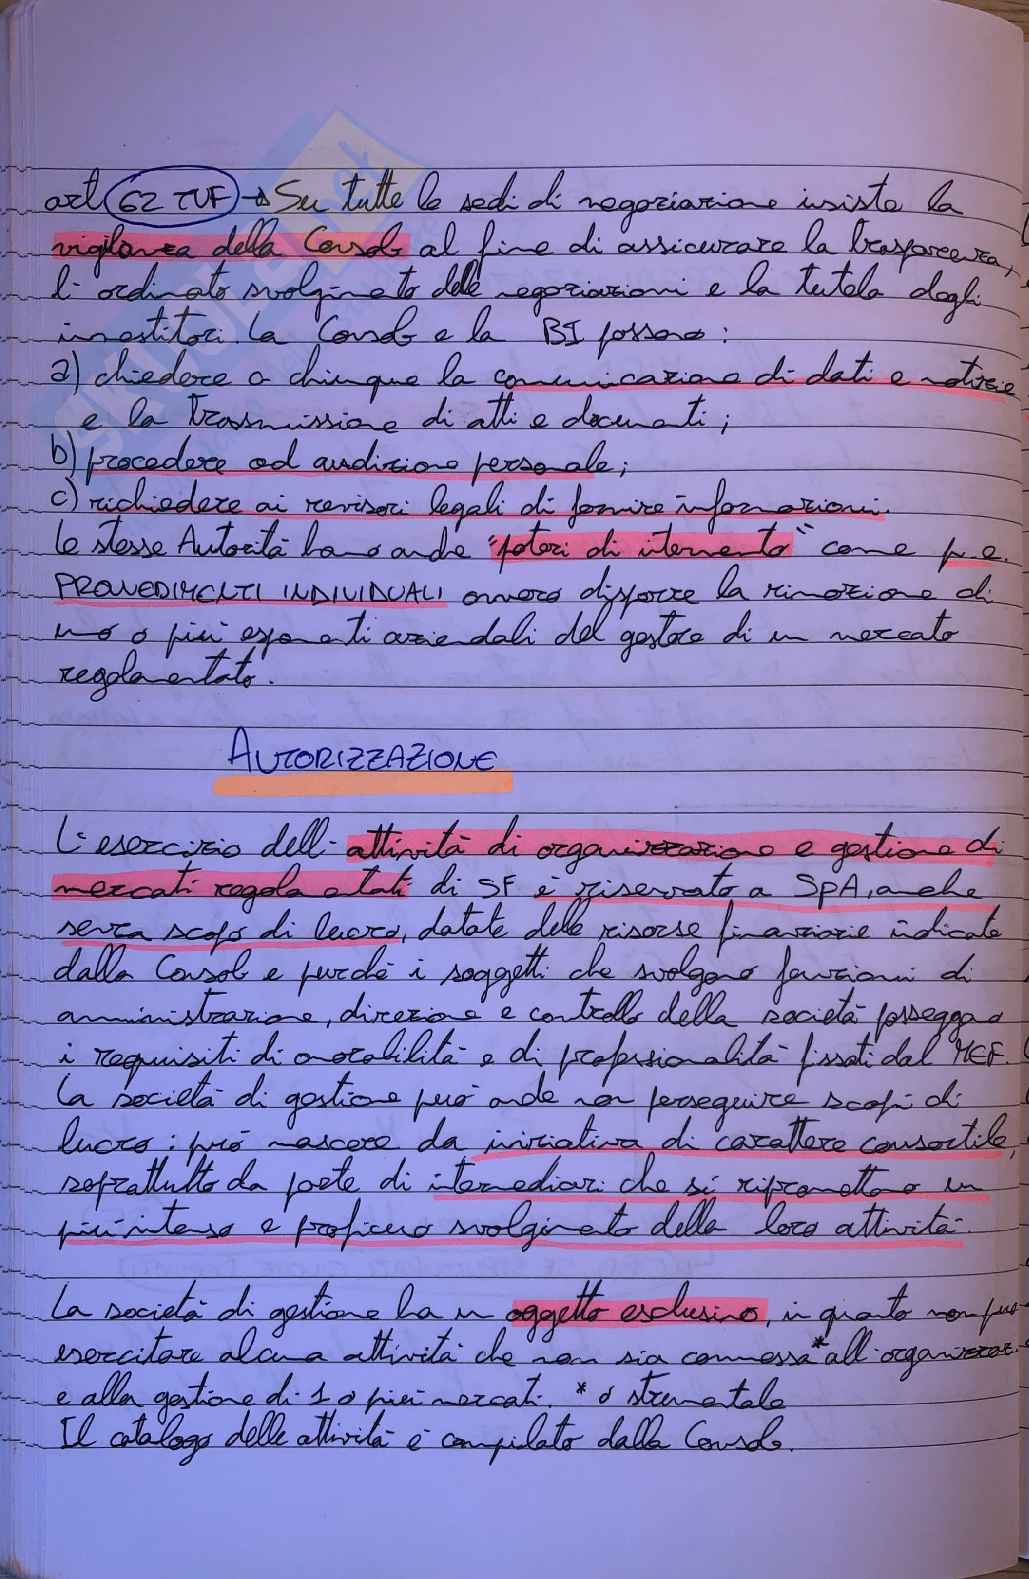 art 62 TUF → Su tutte le sedi di negoziazione insiste la
vigilanza della Consob al fine di assicurare la trasparenza,
l'ordinato svolgimento delle negoziazioni e la tutela degli
investitori. La Consob e la BI possono:
a) chiedere a chiunque la comunicazione di dati e notizie
e la trasmissione di atti e documenti;
b) procedere ad audizione personale;
c) richiedere ai revisori legali di fornire informazioni.
Le stesse Autorità hanno anche "poteri di intervento" come p.e.
PROVVEDIMENTI INDIVIDUALI ovvero disporre la rimozione di
uno o più esponenti aziendali del gestore di un mercato
regolamentato.
AUTORIZZAZIONE
L'esercizio dell'attività di organizzazione e gestione di
mercati regolamentati di SF è riservato a SPA, anche
senza scopo di lucro, dotate delle risorse finanziarie indicate
dalla Consob e purché i soggetti che svolgono funzioni di
amministrazione, direzione e controllo della società posseggano
i requisiti di onorabilità e di professionalità fissati dal MEF.
La società di gestione può anche non perseguire scopi di
lucro: può nascere da iniziativa di carattere consortile,
soprattutto da parte di intermediari che si ripromettono un
più intenso e proficuo svolgimento della loro attività.
La società di gestione ha un oggetto esclusivo, in quanto non può
esercitare alcuna attività che non sia connessa* all'organizzaz.
e alla gestione di 1 o più mercati. * o strumentale
Il catalogo delle attività è compilato dalla Consob.